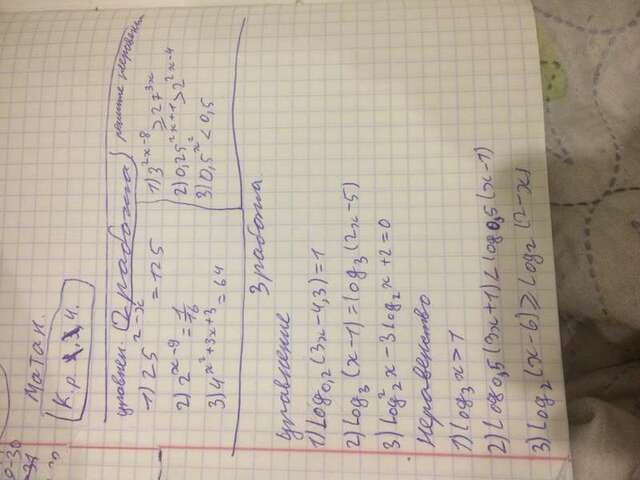 Матан.
К.р. 1, 3, 4.
уравнен. (2 работа) решите неравен
1) 25^2-x = 125
2) 2^x-9 = 1/16
3) 4^x²+3x+3 = 64
1) 3^2x-8 ≥ 27^3x
2) 0,25^2x+1 > 2^2x-4
3) 0,5^x² < 0,5
3 работа
уравнение
1) Log₀,₂ (3x-4,3) = 1
2) Log₃ (x-1) = log₃ (2x-5)
3) Log²₂ x - 3 log₂ x + 2 = 0
Неравенство
1) Log₃ x > 1
2) Log₀,₅ (3x+1) < log₀,₅ (x-1)
3) Log₂ (x-6) ≥ Log₂ (2-x)